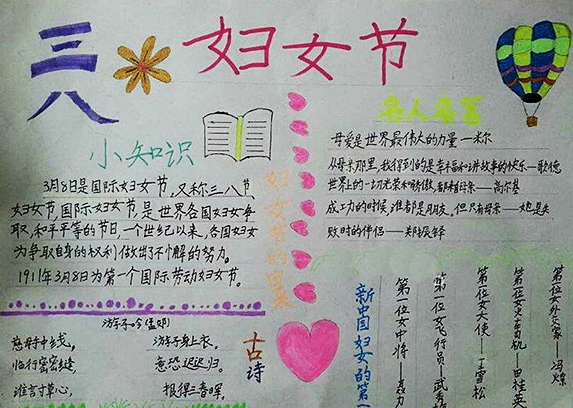 三八
妇女节
小知识
3月8日是国际妇女节，又称三八节，
妇女节，国际妇女节，是世界各国妇女争
取，和平平等的节日，一个世纪以来，各国妇女
为争取自身的权利做出了不懈的努力。
1911年3月8日为第一个国际劳动妇女节。
妇女节的由来
名人名言
母爱是世界最伟大的力量—米尔
从母亲那里，我得到的是幸福和讲故事的快乐—歌德
世界上的一切光荣和骄傲，都来自母亲——高尔基
成工力的时候，谁都是朋友，但只有母亲——她是失
败时的伴侣——郑振铎
古诗
游子吟
慈母手中线，
游子身上衣，
临行密密缝，
意恐迟迟归。
谁言寸草心，
报得三春晖，
新中国妇女的第一
第一位女中将——聂力
第一位女飞行员——武秀
第一位女大使——丁雪松
第一位女外长——冯